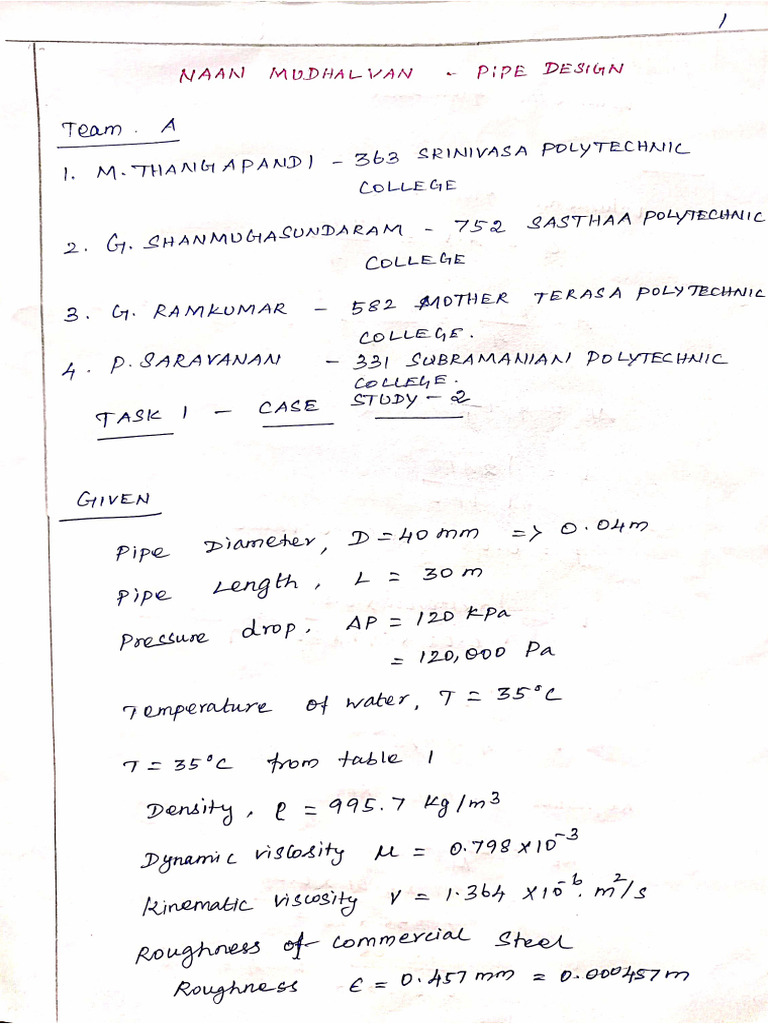 1
NAAN MUDHALVAN - PIPE DESIGN
Team. A
1. M.THANGAPANDI - 363 SRINIVASA POLYTECHNIC
COLLEGE
2. G. SHANMUGASUNDARAM - 752 SASTHAA POLYTECHNIC
COLLEGE
3. G. RAMKUMAR - 582 MOTHER TERASA POLYTECHNIC
COLLEGE.
4. P. SARAVANAN - 331 SUBRAMANIANI POLYTECHNIC
COLLEGE.
TASK 1 - CASE STUDY - 2
GIVEN
Pipe Diameter, D = 40 mm => 0.04m
Pipe Length, L = 30 m
Pressure drop, ΔP = 120 kPa
= 120,000 Pa
Temperature of water, T = 35°C
T = 35°C from table 1
Density, ρ = 995.7 kg/m³
Dynamic viscosity μ = 0.798 × 10⁻³
Kinematic viscosity ν = 1.364 × 10⁻⁶. m²/s
Roughness of commercial steel
Roughness ε = 0.457 mm = 0.000457 m